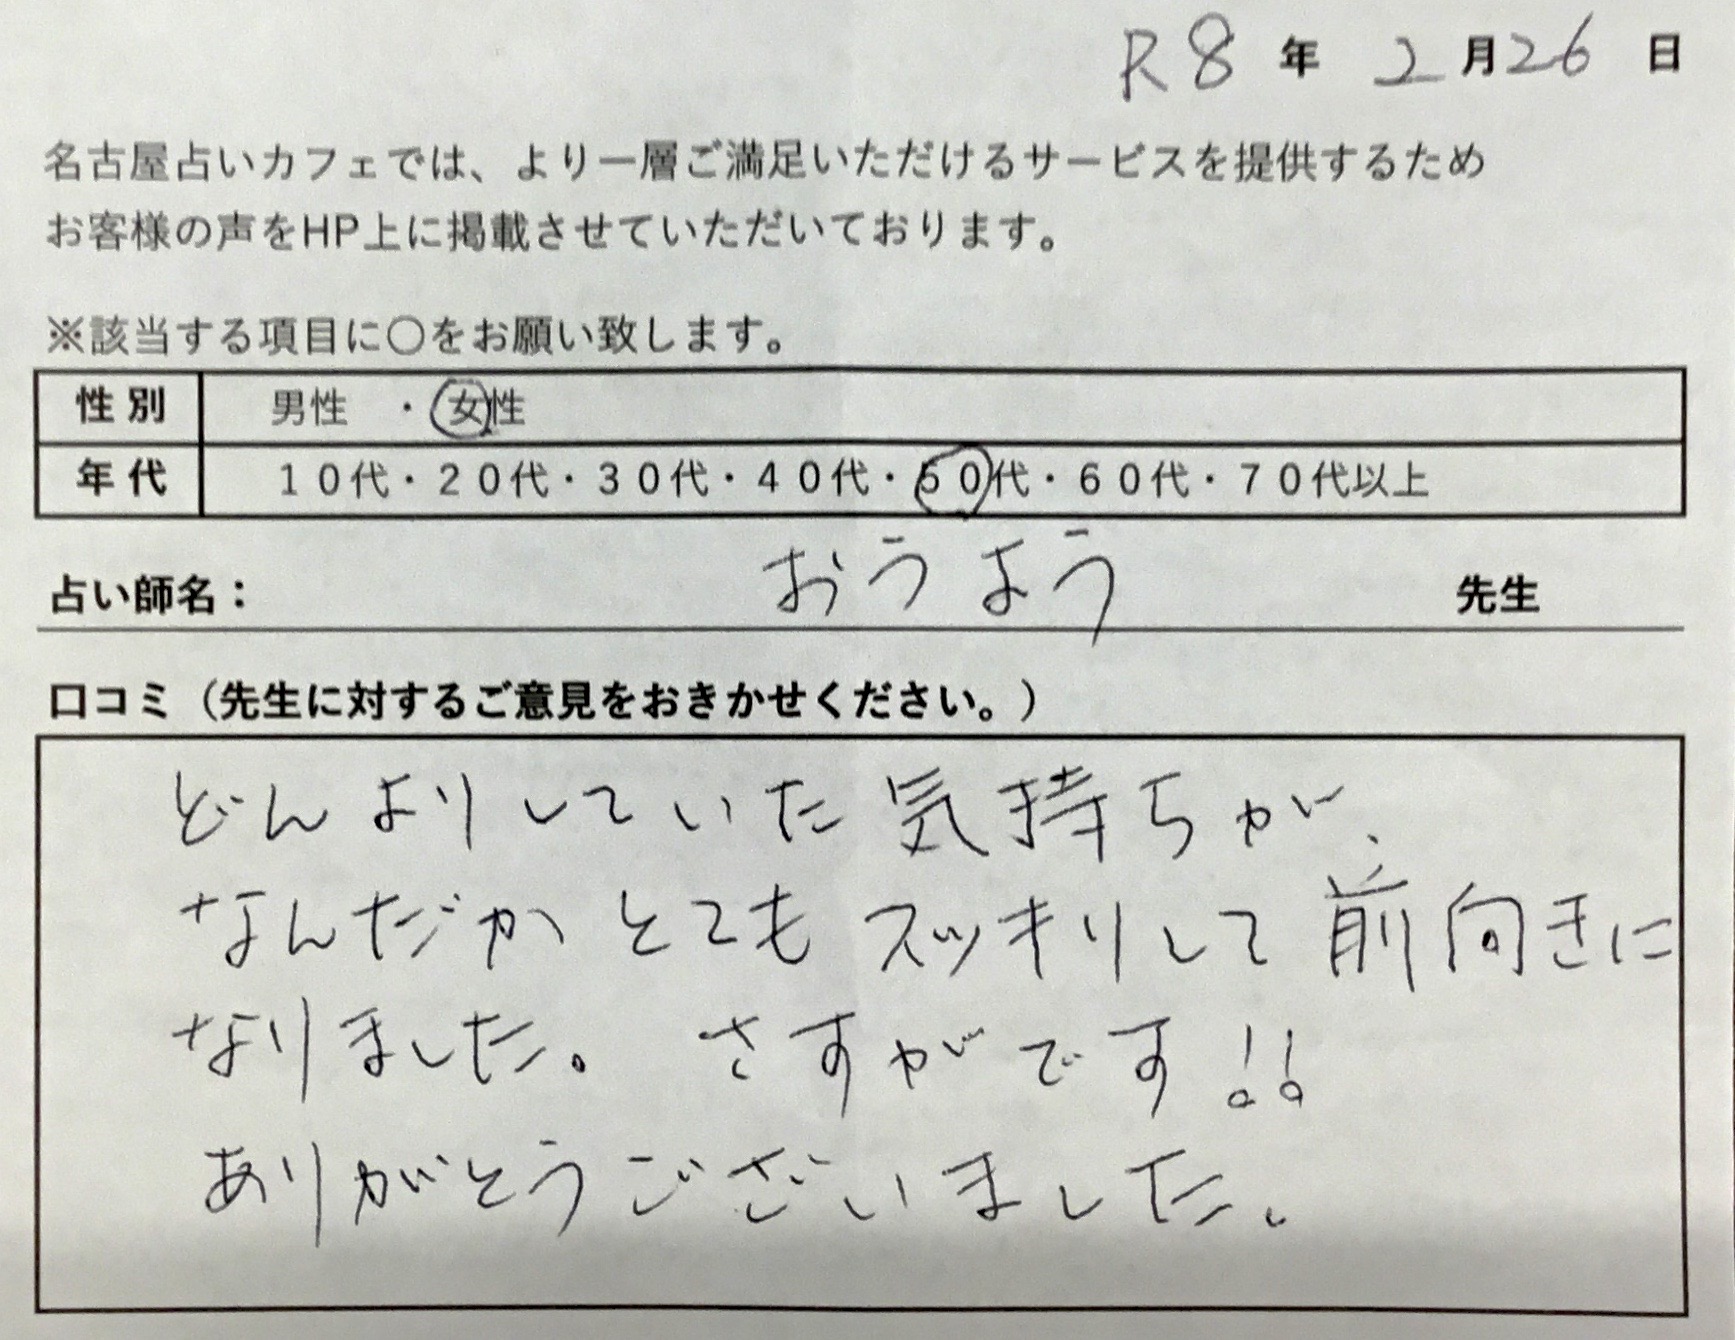 R8年 2月26日
名古屋占いカフェでは、より一層ご満足いただけるサービスを提供するため
お客様の声をHP上に掲載させていただいております。
※該当する項目に〇をお願い致します。
性別 男性 ・ 女性
年代 10代・20代・30代・40代・50代・60代・70代以上
占い師名： おうよう 先生
口コミ（先生に対するご意見をおきかせください。）
どんよりしていた気持ちが、
なんだかとてもスッキリして前向きに
なりました。 さすがです!!
ありがとうございました。